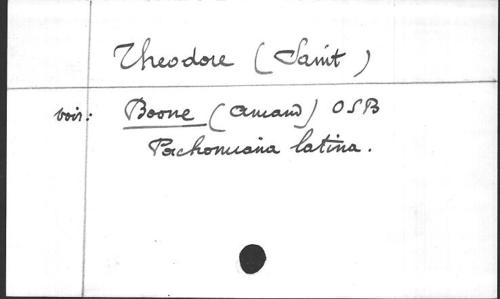 Theodore (Saint)
voir: Boone (Amand) OSB
Pachomiana latina.